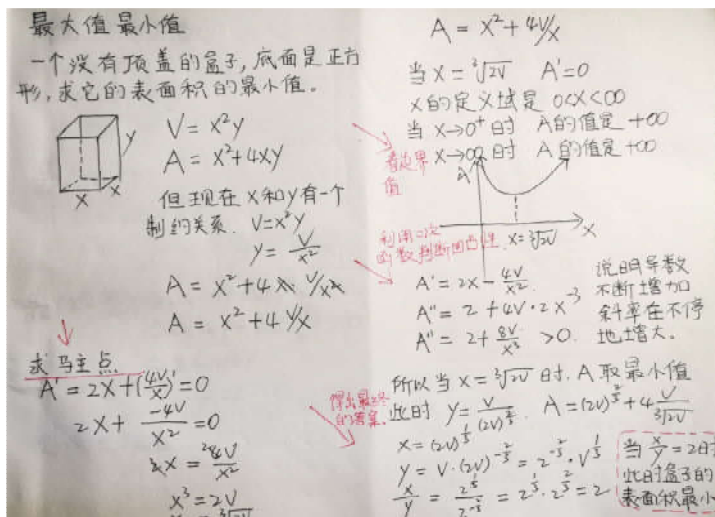 最大值最小值
一个没有顶盖的盒子,底面是正方
形,求它的表面积的最小值。
y
x
x
V = x²y
A = x²+4xy
但现在 x和y有一个
制约关系. V=x²y
y = V/x²
A = x²+4x V/x²
A = x²+4V/x
求驻点
A' = 2x+(4V/x)'=0
2x+ -4V/x² =0
2x = 4V/x²
x³=2V
A = x²+4V/x
当 x = ³√2V A'=0
x的定义域是 0<x<∞
当 x→0⁺时 A的值是 +∞
x→∞ 时 A的值是+∞
看边界
值
A
x
x=³√2V
利用二次
的数判断凹凸性
A' = 2x - 4V/x²
A'' = 2 + 4V·2x⁻³
A'' = 2+ 8V/x³ >0.
说明导数
不断增加
斜率在不停
地增大。
所以当 x=³√2V 时. A取最小值
得出最终
的答案。
此时 y= V/(2V)^⅔. A=(2V)^⅔+4 V/³√2V
x=(2V)^⅓
y= V·(2V)^-⅔ = 2^-⅔·V^⅓
x/y = 2^⅓/2^-⅔ = 2^⅓·2^⅔=2
当 x/y=2时
此时盒子的
表面积最小